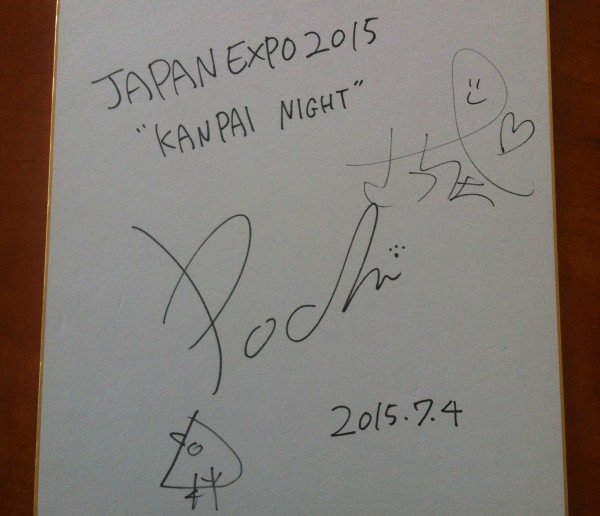 JAPAN EXPO 2015
"KANPAI NIGHT"
Pochi
2015.7.4